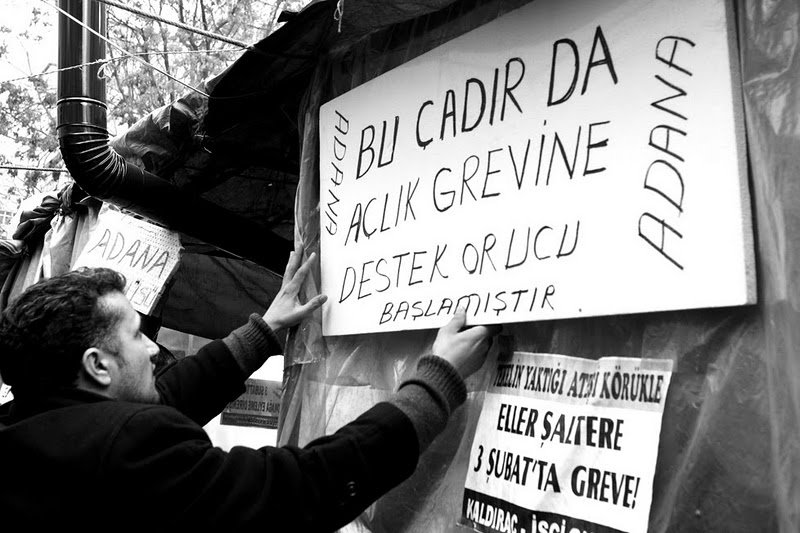 ADANA
BU ÇADIR DA
AÇLIK GREVİNE
DESTEK ORUCU
BAŞLAMIŞTIR.
ADANA
ADANA
İŞÇİ
YAKTIĞI ATEŞİ KÖRÜKLE
ELLER ŞALTERE
3 ŞUBAT'TA GREVE!
KALDIRAÇ - İŞÇİ
3 ŞUBAT'TA